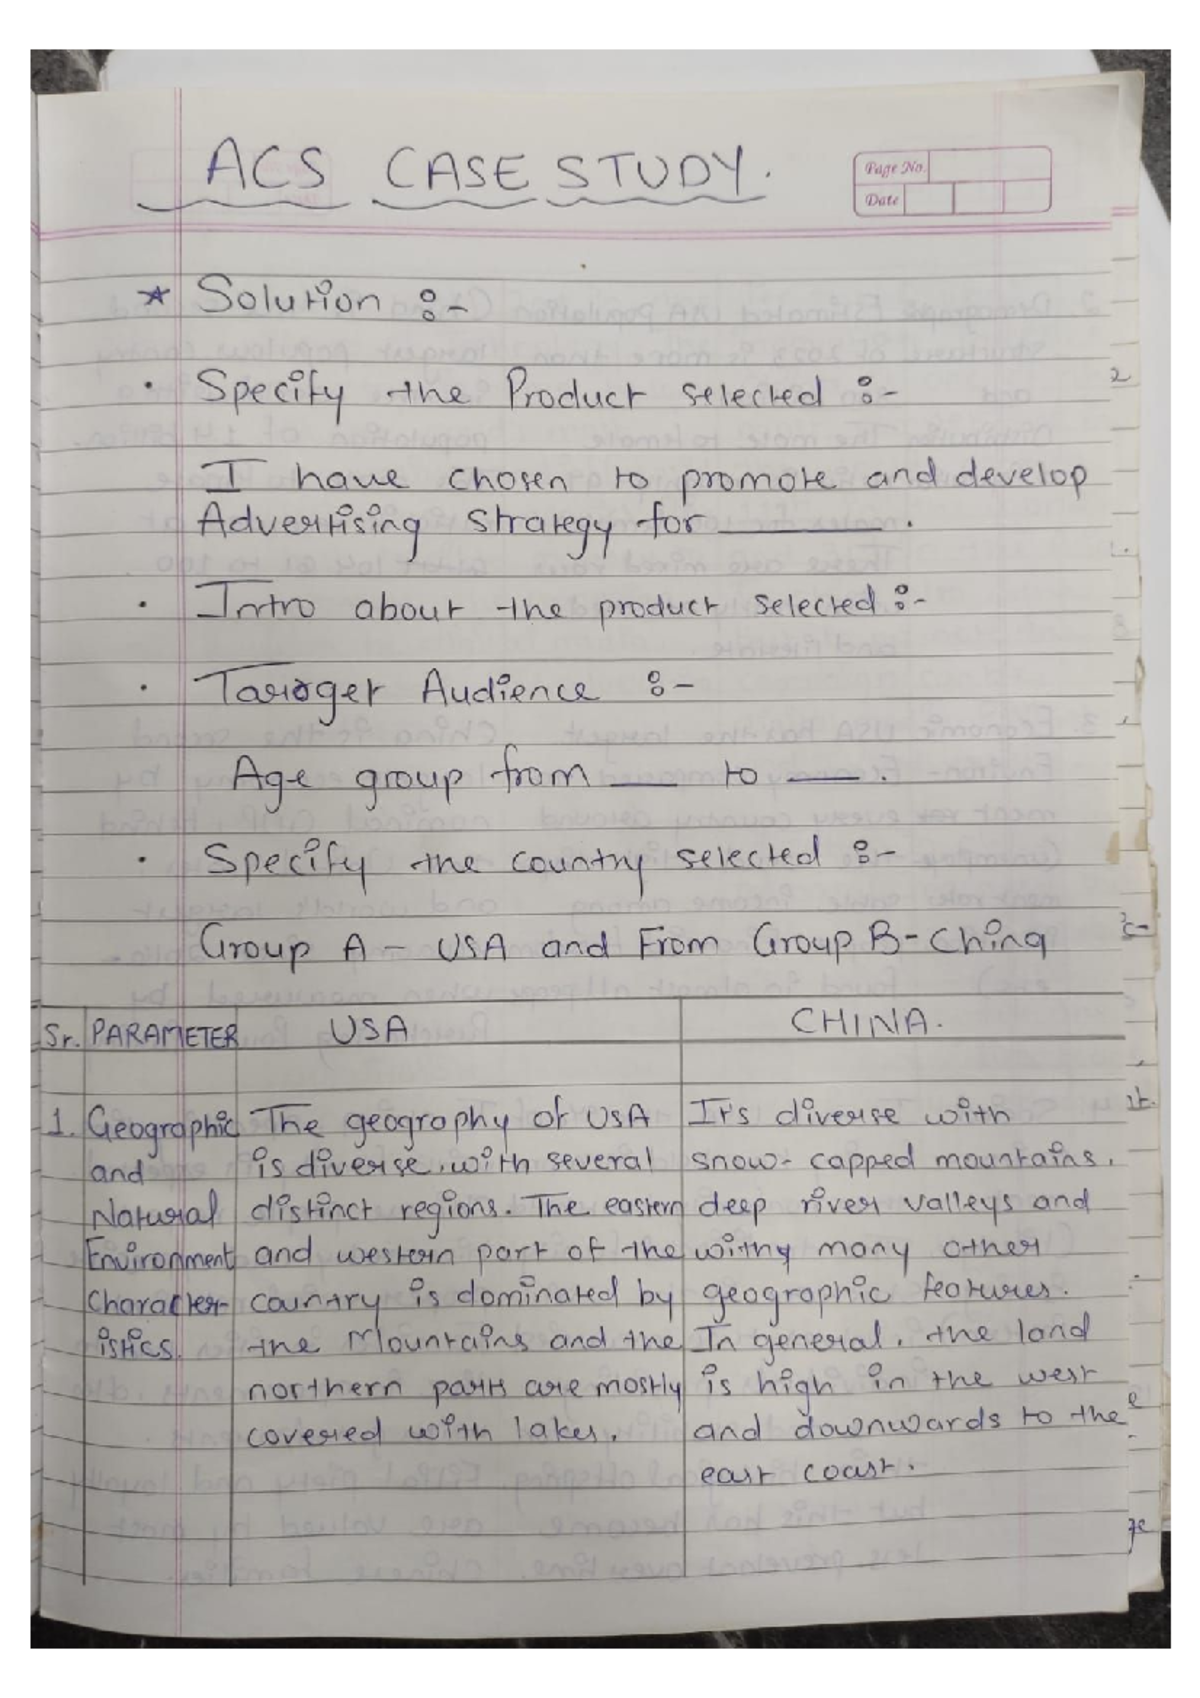 ACS CASE STUDY.
Page No.
Date
* Solution :-
• Specify the Product selected :-
I have chosen to promote and develop
Advertising strategy for ______ .
• Intro about the product selected :-
• Target Audience :-
Age group from ___ to ___ .
• Specify the country selected :-
Group A - USA and From Group B - China
Sr. PARAMETER USA CHINA.
1. Geographic The geography of USA It's diverse with
and is diverse. with several snow-capped mountains,
Natural distinct regions. The eastern deep river valleys and
Environment and western part of the withy many other
Character- country is dominated by geographic features.
istics. the Mountains and the In general, the land
northern parts are mostly is high in the west
covered with lakes. and downwards to the
east coast.